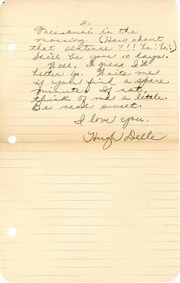 2.
Missouri in the
morning. (How about
that sentence?!!! Ha! Ha!)
Still be gone 10 days.
Well, I guess I'd
better go. Write me
if you find a spare
minute. If not,
think of me a little.
Be real sweet.
I love you,
Hugh Delle